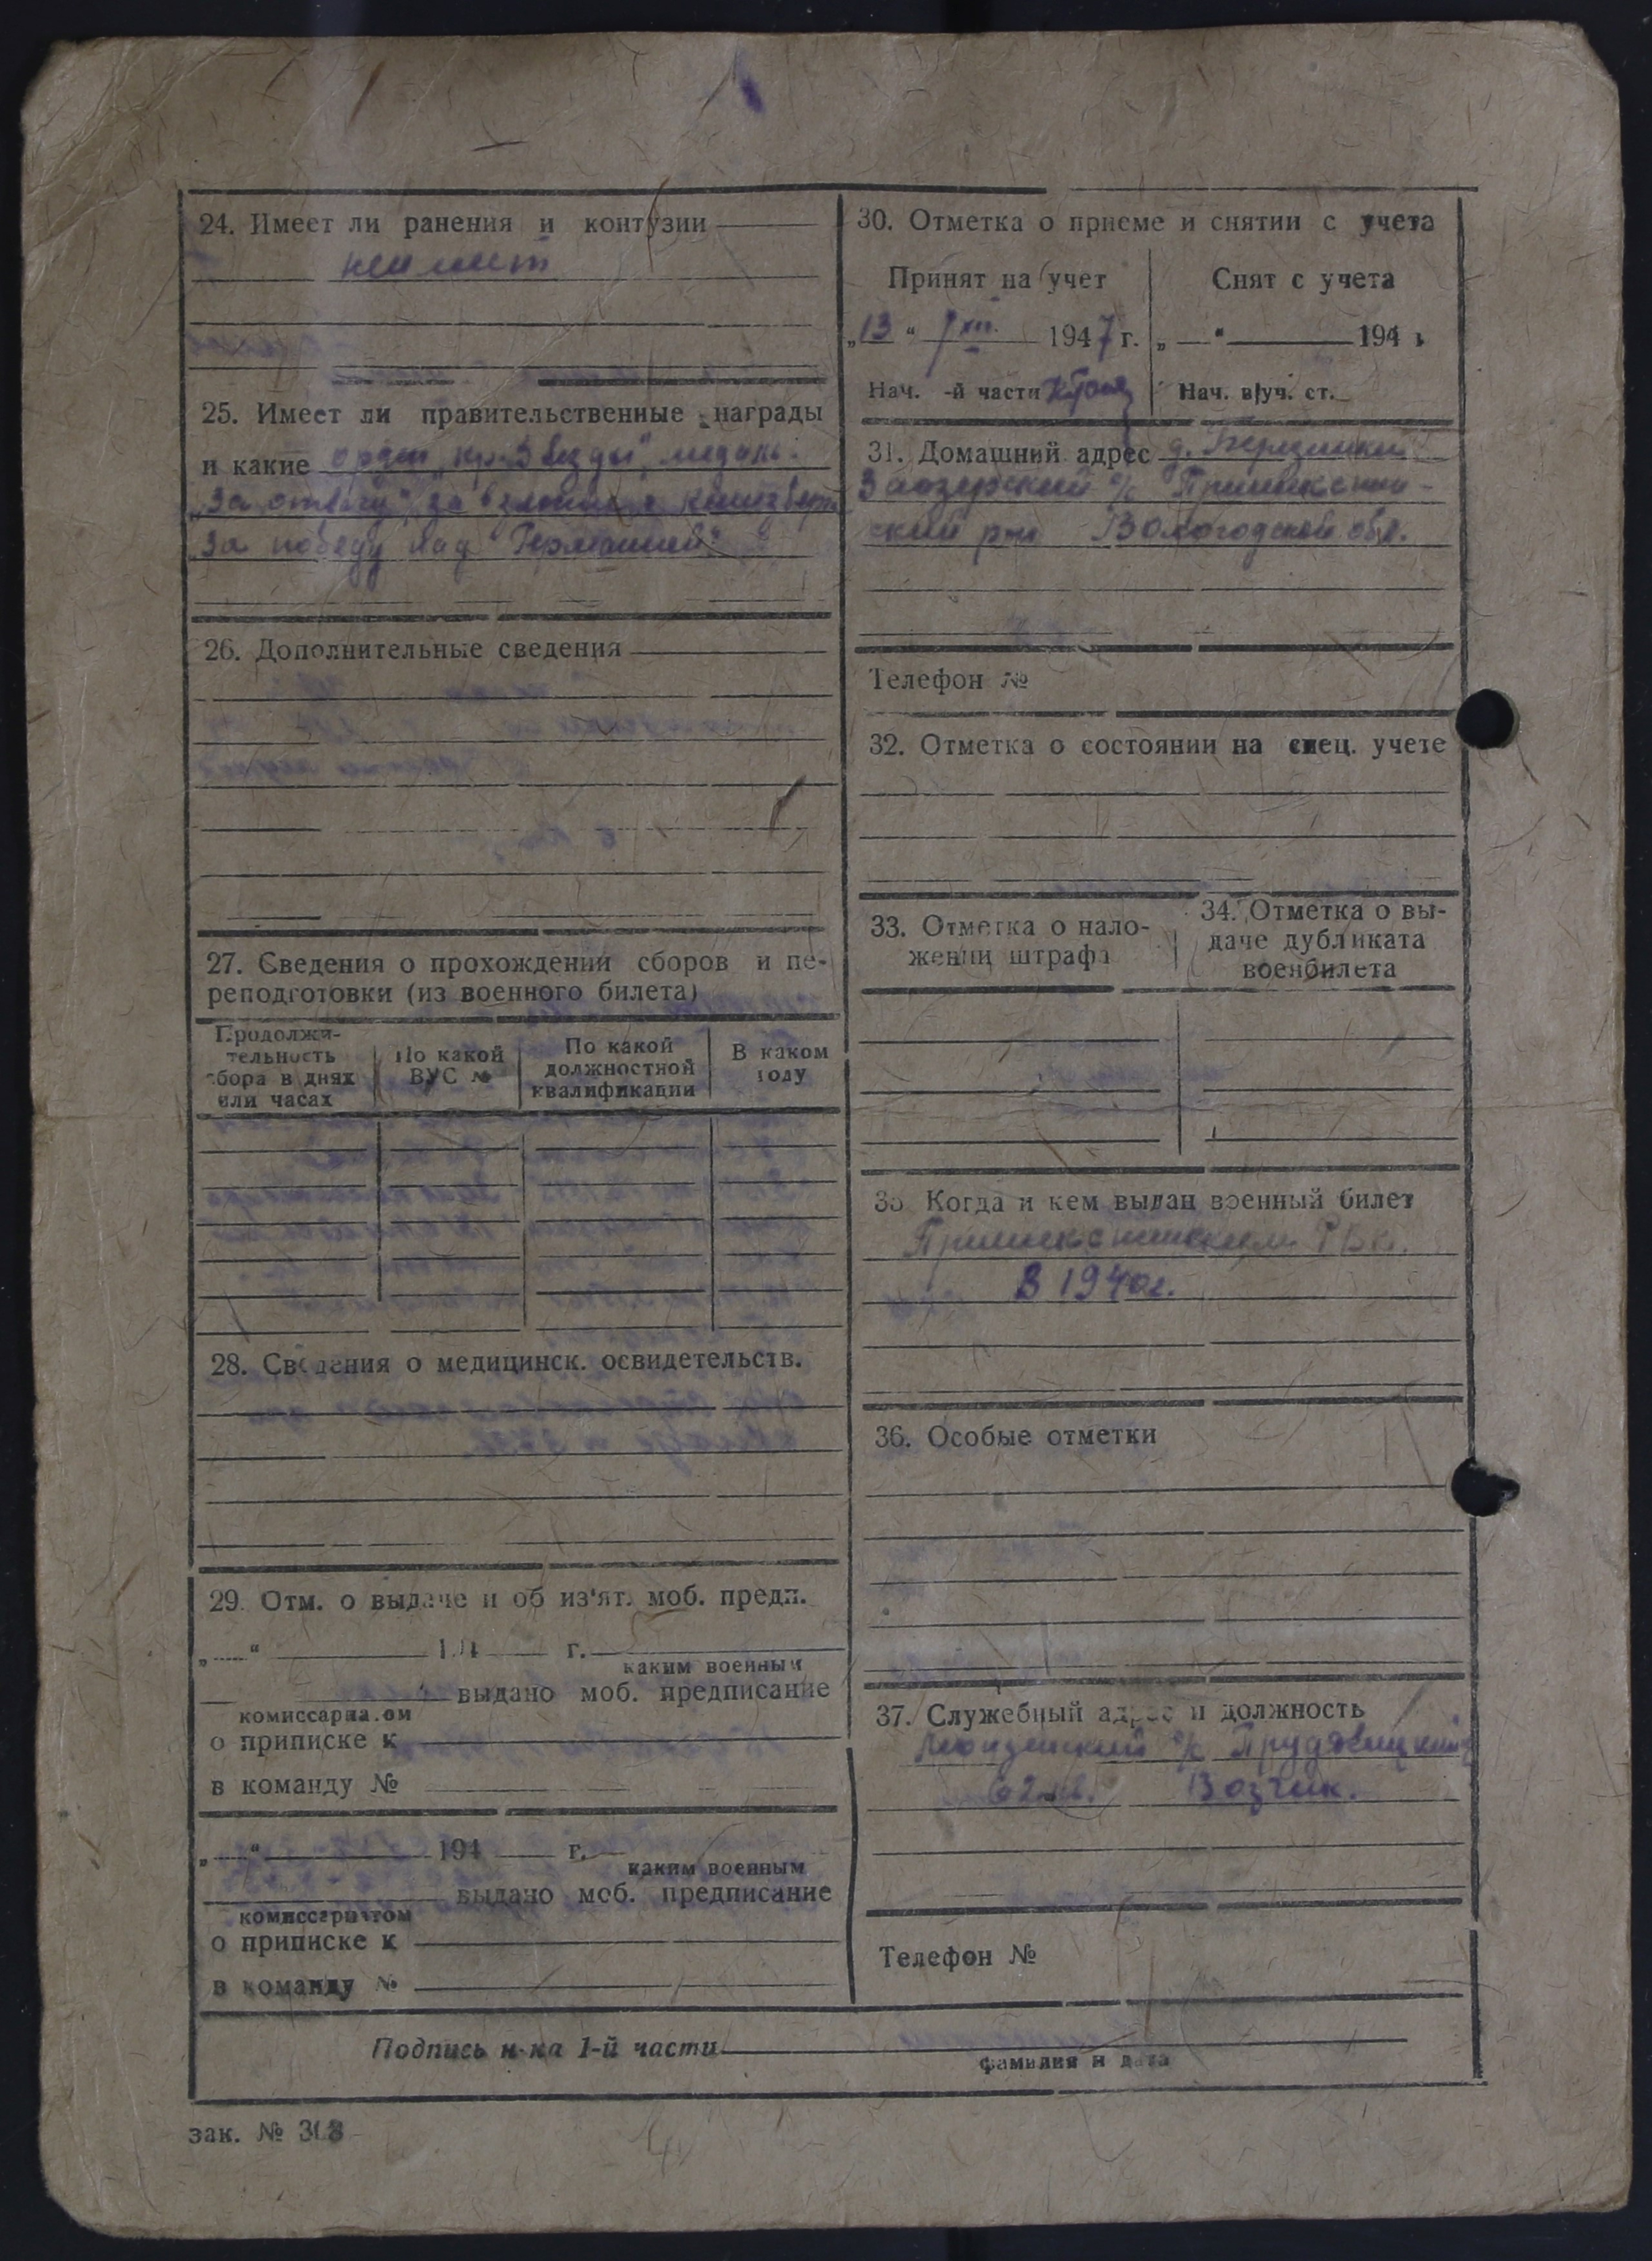 24. Имеет ли ранения и контузии
неимеет
25. Имеет ли правительственные награды
и какие орден „кр. Звезды", медаль.
„За отвагу", за взятие г. кенигсберг
„За победу над Германией"
26. Дополнительные сведения
27. Сведения о прохождении сборов и пе-
реподготовки (из военного билета)
Продолжи-
тельность
сбора в днях
или часах
По какой
ВУС №
По какой
должностной
квалификации
В каком
году
28. Сведения о медицинск. освидетельств.
29. Отм. о выдаче и об из'ят. моб. предп.
„ " 194 г.
каким военным
выдано моб. предписание
комиссариатом
о приписке к
в команду №
„ " 194 г.
каким военным
выдано моб. предписание
комиссариатом
о приписке к
в команду №
30. Отметка о приеме и снятии с учета
Принят на учет
Снят с учета
„13" XII. 1947 г.
„ " 194 г
Нач. -й части
Нач. в/уч. ст.
31. Домашний адрес д. Березники
Заозерский с/с Пришекснин-
ский р-н Вологодской обл.
Телефон №
32. Отметка о состоянии на спец. учете
33. Отметка о нало-
жении штрафа
34. Отметка о вы-
даче дубликата
военбилета
35 Когда и кем выдан военный билет
Пришекснинским РВК.
В 1940г.
36. Особые отметки
37. Служебный адрес и должность
с/с
62 кв. Возчик.
Телефон №
Подпись н-ка 1-й части
фамилия и дата
зак. № 308